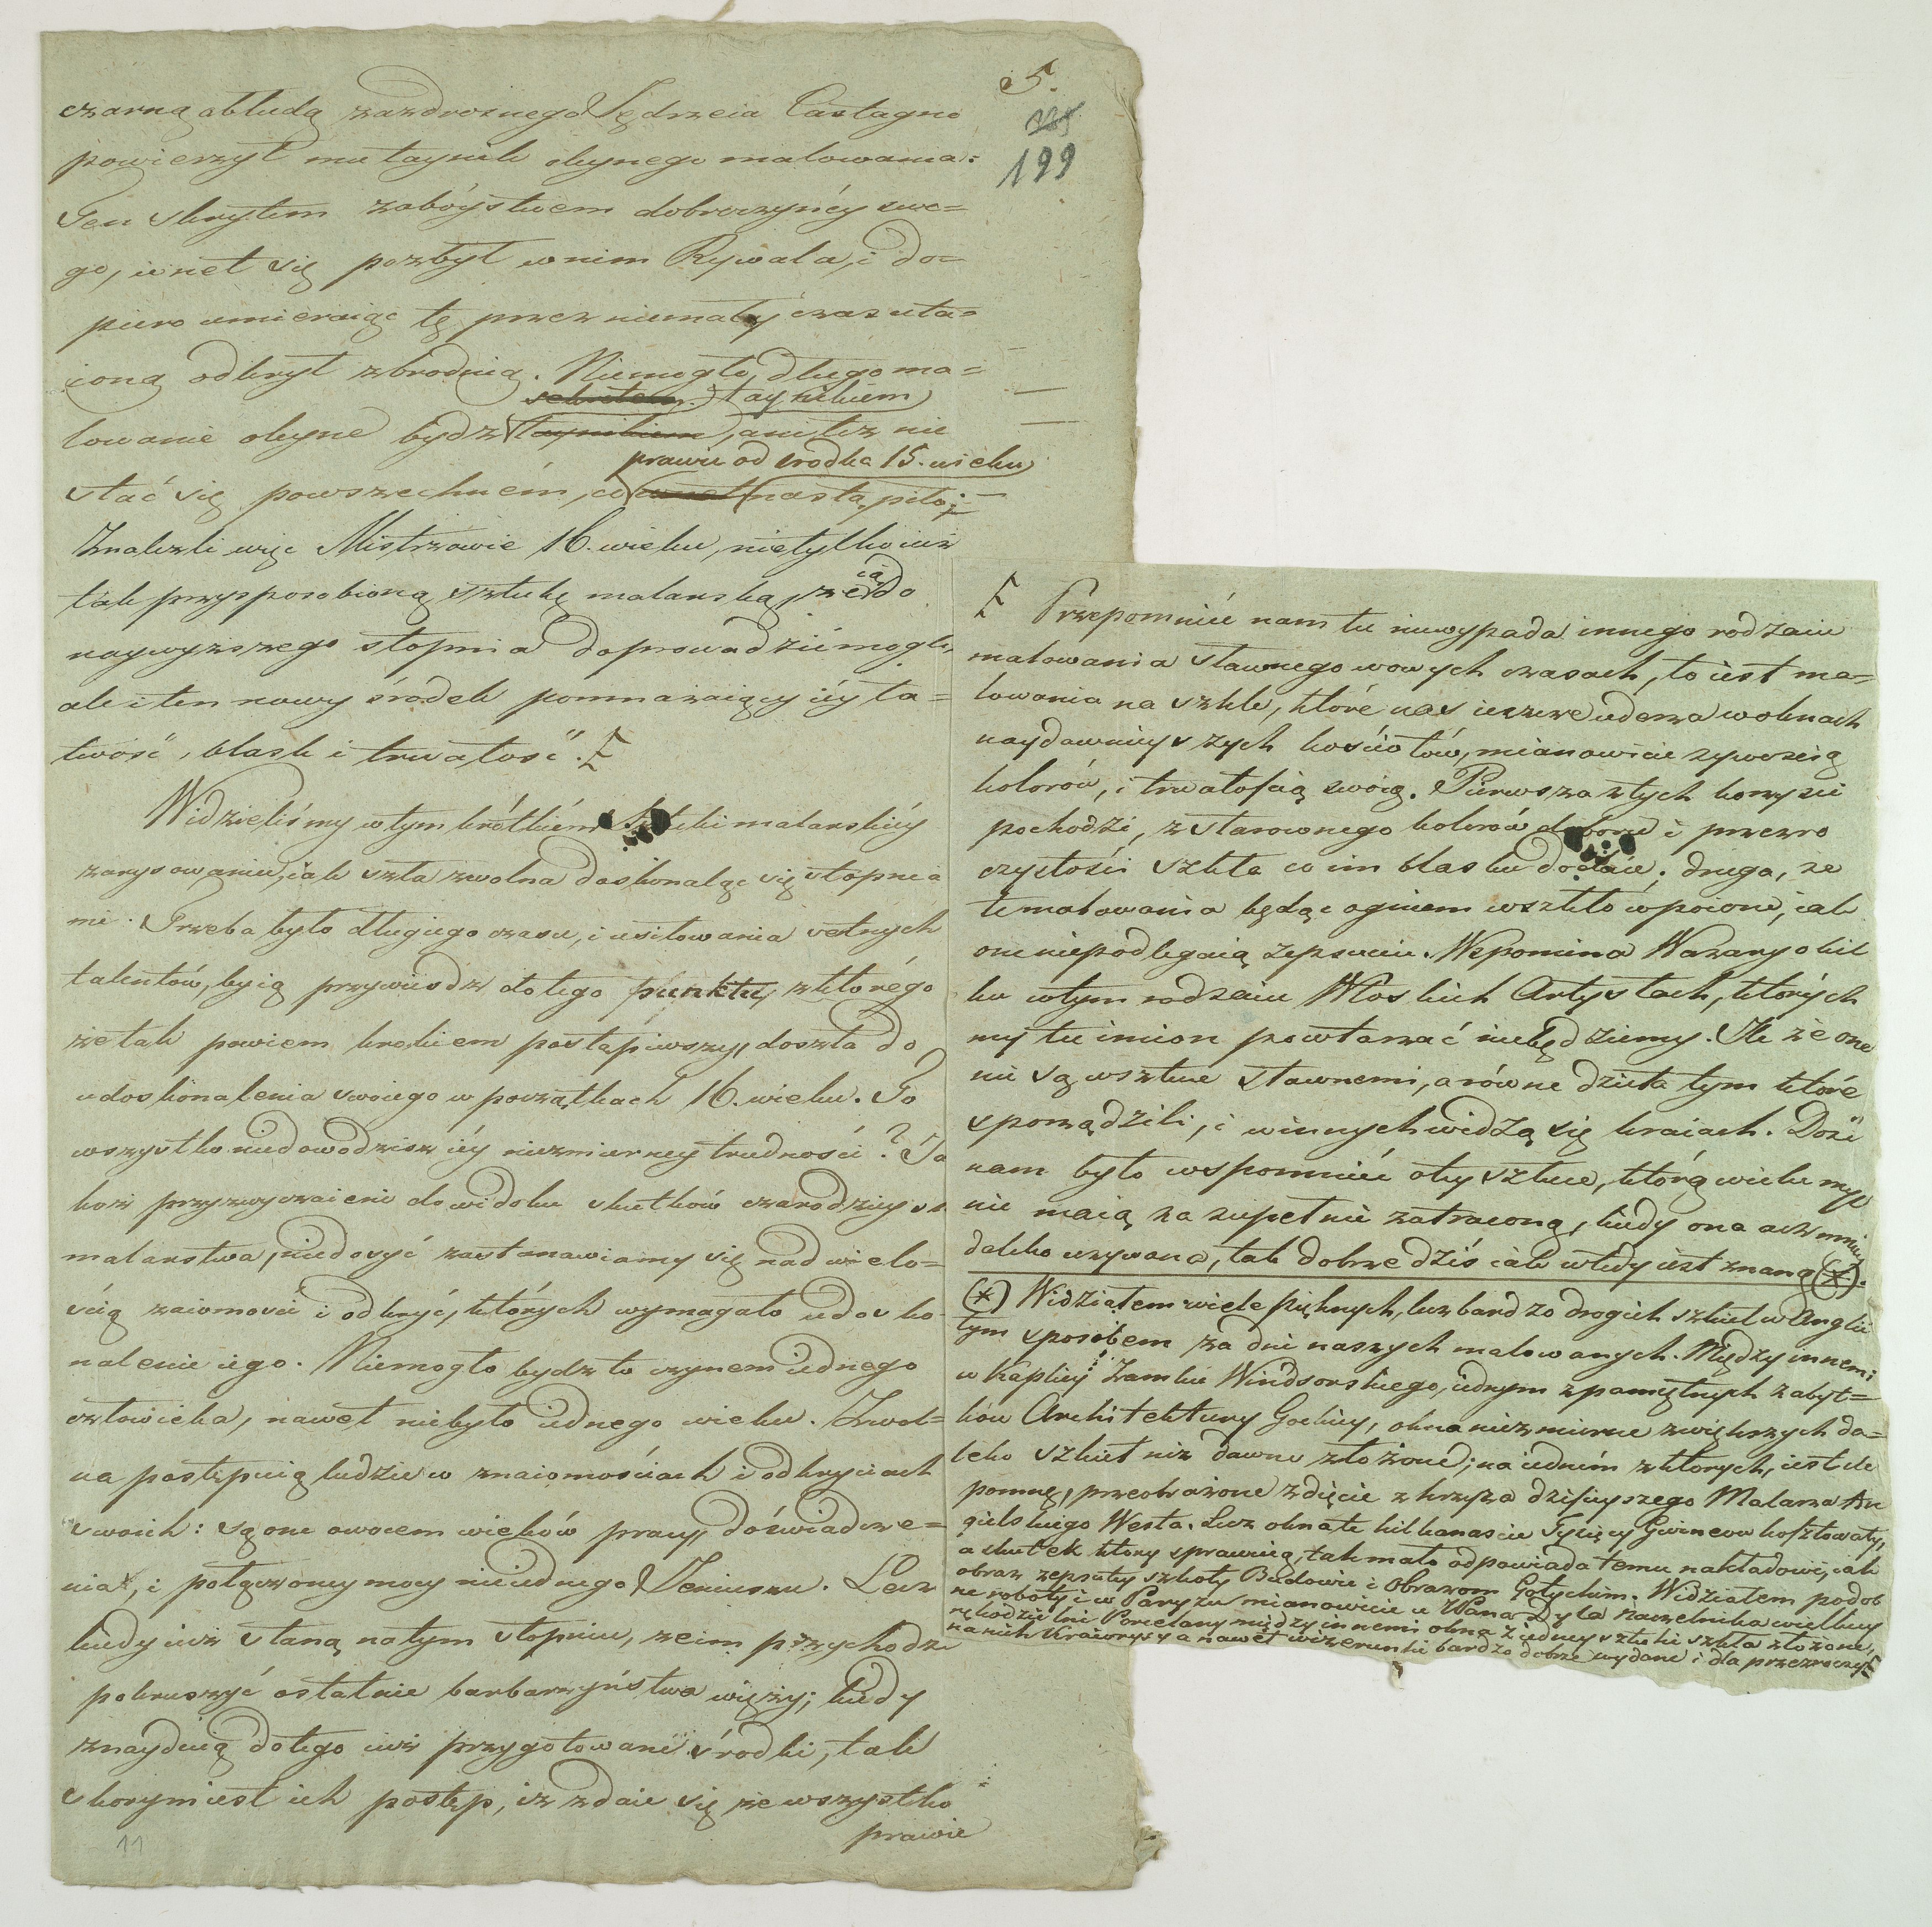 5.
225
199
czarną obłudą zazdrosnego Jędrzeia Castagno
powierzył mu taynik oleynego malowania:
Ten skrytem zabóystwem dobroczyńcy swe=
go, wnet się pozbył w nim Rywala, i do=
piero umieraiąc tę przez niemały czas uta=
ioną odkrył zbrodnią. Niemogło długo ma=
sekretem. taynikiem
lowanie oleyne bydz taynikiem, ani też nie
prawie od srodka 15. wieku
stać się powszechném, co wnet nastąpiło;
Znalezli więc Mistrzowie 16. wieku, nietylko iuż
tak przysposobioną sztukę malarską, że ią do
naywyższego stopnia doprowadzić mogli,
ale i ten nowy środek pomnażaiący iéy ła=
twość, blask i trwałość. E
Widzieliśmy w tym krótkiém sztuki malarskiéy
zarysowaniu, iak szła zwolna doskonaląc się stopnia
mi. Trzeba było długiego czasu, i usiłowania setnych
talentów, by ią przywieśdz do tego punktu, z którégo
że tak powiem krokiem postąpiwszy, doszła do
udoskonalenia swoiego w początkach 16. wieku. To
wszystko niedowodzisz iéy niezmierney trudności? Ja
koż przyzwyczaieni do widoku skutków czarodzieys
malarstwa, niedosyć zastanawiamy się nad wielo=
ścią znaiomości i odkryć, których wymagało udosko-
nalenie iego. Niemogło bydz to czynem iednego
człowieka, nawet niebyło iednego wieku. Zwol=
na postępuią ludzie w znaiomościach i odkryciach
swoich: są one owocem wieków pracy, doświadcze=
nia, i połączoney mocy nieiednego Jeniuszu. Lecz
kiedy iuż staną na tym stopniu, że im przychodzi
pokruszyć ostatnie barbarzyństwa więzy; kiedy
znayduią do tego iuż przygotowané środki, tak
skorym iest ich postęp, iż zdaie się że wszystko
prawie
11
E Przepomnieć nam tu niewypada innego rodzaiu
malowania sławnego w owych czasach, to iest ma=
lowania na szkle, któré nas ieszcze uderza w oknach
naydawnieyszych kościołów, mianowicie żywością
kolorów, i trwałością swoią. Pierwsza z tych korzyści
pochodzi, z starownego kolorów doboru i przezro
czystości szkła co im blasku dodaie; druga, że
te malowania będąc ogniem w szkło wpoione, iak
one niepodlegaią zepsuciu. Wspomina Wazary o kil
ku w tym rodzaiu Włoskich Artystach, których
my tu imion powtarzać niebędziemy. Ile że one
nie są w sztuce sławnemi, a równe dzieła tym które
sporządzili, i w innych widzą się kraiach. Dość
nam było wspomnieć o tey sztuce, którą wielu myl
nie maią za zupełnie zatraconą, kiedy ona acz mniey
daleko używana, tak dobrze dziś iak wtedy iest znaną (*).
(*) Widziałem wiele pięknych, lecz bardzo drogich szkieł w Anglii
tym sposobem za dni naszych malowanych. Między innemi
w Kaplicy Zamku Windsorskiego, iednym z pamiętnych zabyt=
ków Architektury Gockiey, okna niezmierne z większych da=
leko szkieł niż dawne złożoné; na iedném z których, iest ile
pomnę, przeobrażone zdięcie z krzyża dzisieyszego Malarza An
gielskiego Westa. Lecz okna te kilkanaście Tysięcy Gwineow kosztowały,
a skutek który sprawuią, tak mało odpowiada temu nakładowi, iak
obraz zepsutey szkoły Budowie i Obrazom Gotyckim. Widziałem podob
ne roboty i w Paryżu mianowicie u Pana Dyla naczelnika wielkiey
rękodzielni Porcelany między innemi okna z iedney sztuki szkła złożone,
na nich Kraiorysy a nawet wizerunki bardzo dobrze wydane i dla przezroczys